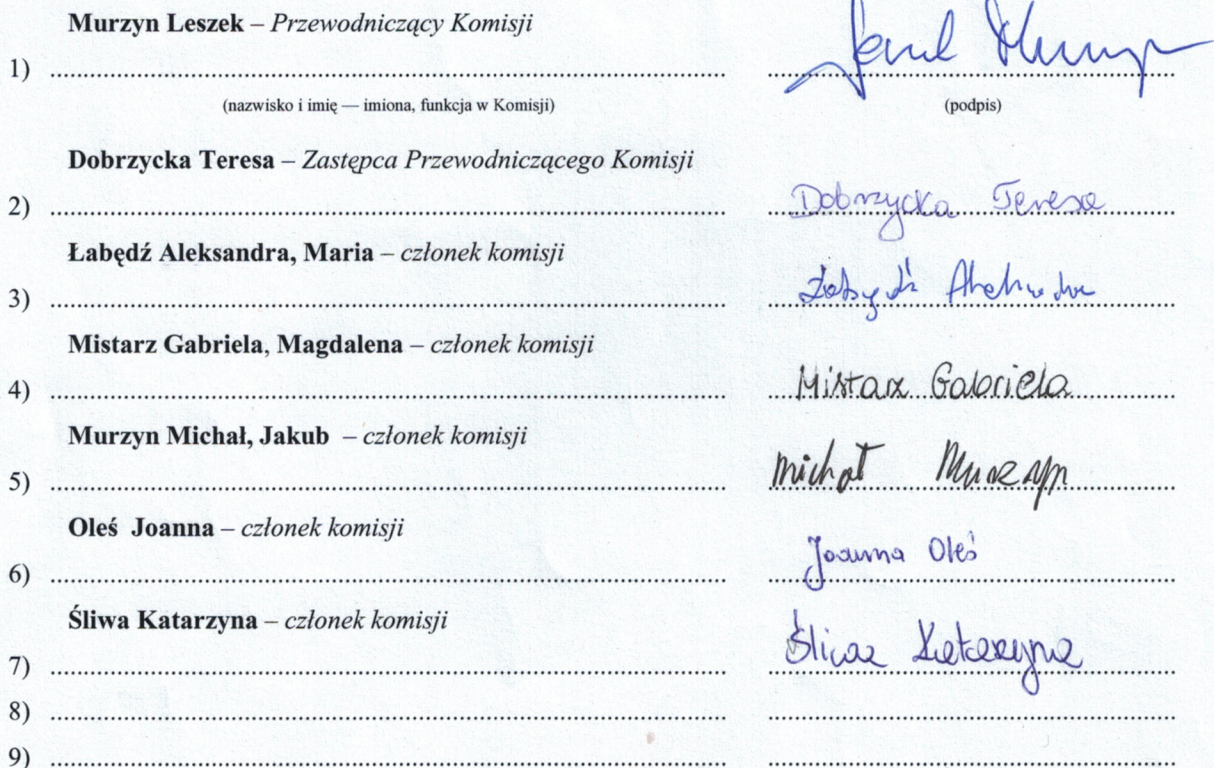 Murzyn Leszek – Przewodniczący Komisji
1) ........................................ ........................................
(nazwisko i imię — imiona, funkcja w Komisji) (podpis)
Dobrzycka Teresa – Zastępca Przewodniczącego Komisji
2) ........................................ Dobrzycka Teresa
Łabędź Aleksandra, Maria – członek komisji
3) ........................................ Łabędź Aleksandra
Mistarz Gabriela, Magdalena – członek komisji
4) ........................................ Mistarz Gabriela
Murzyn Michał, Jakub – członek komisji
5) ........................................ Michał Murzyn
Oleś Joanna – członek komisji
6) ........................................ Joanna Oleś
Śliwa Katarzyna – członek komisji
7) ........................................ Śliwa Katarzyna
8) ........................................ ........................................
9) ........................................ ........................................